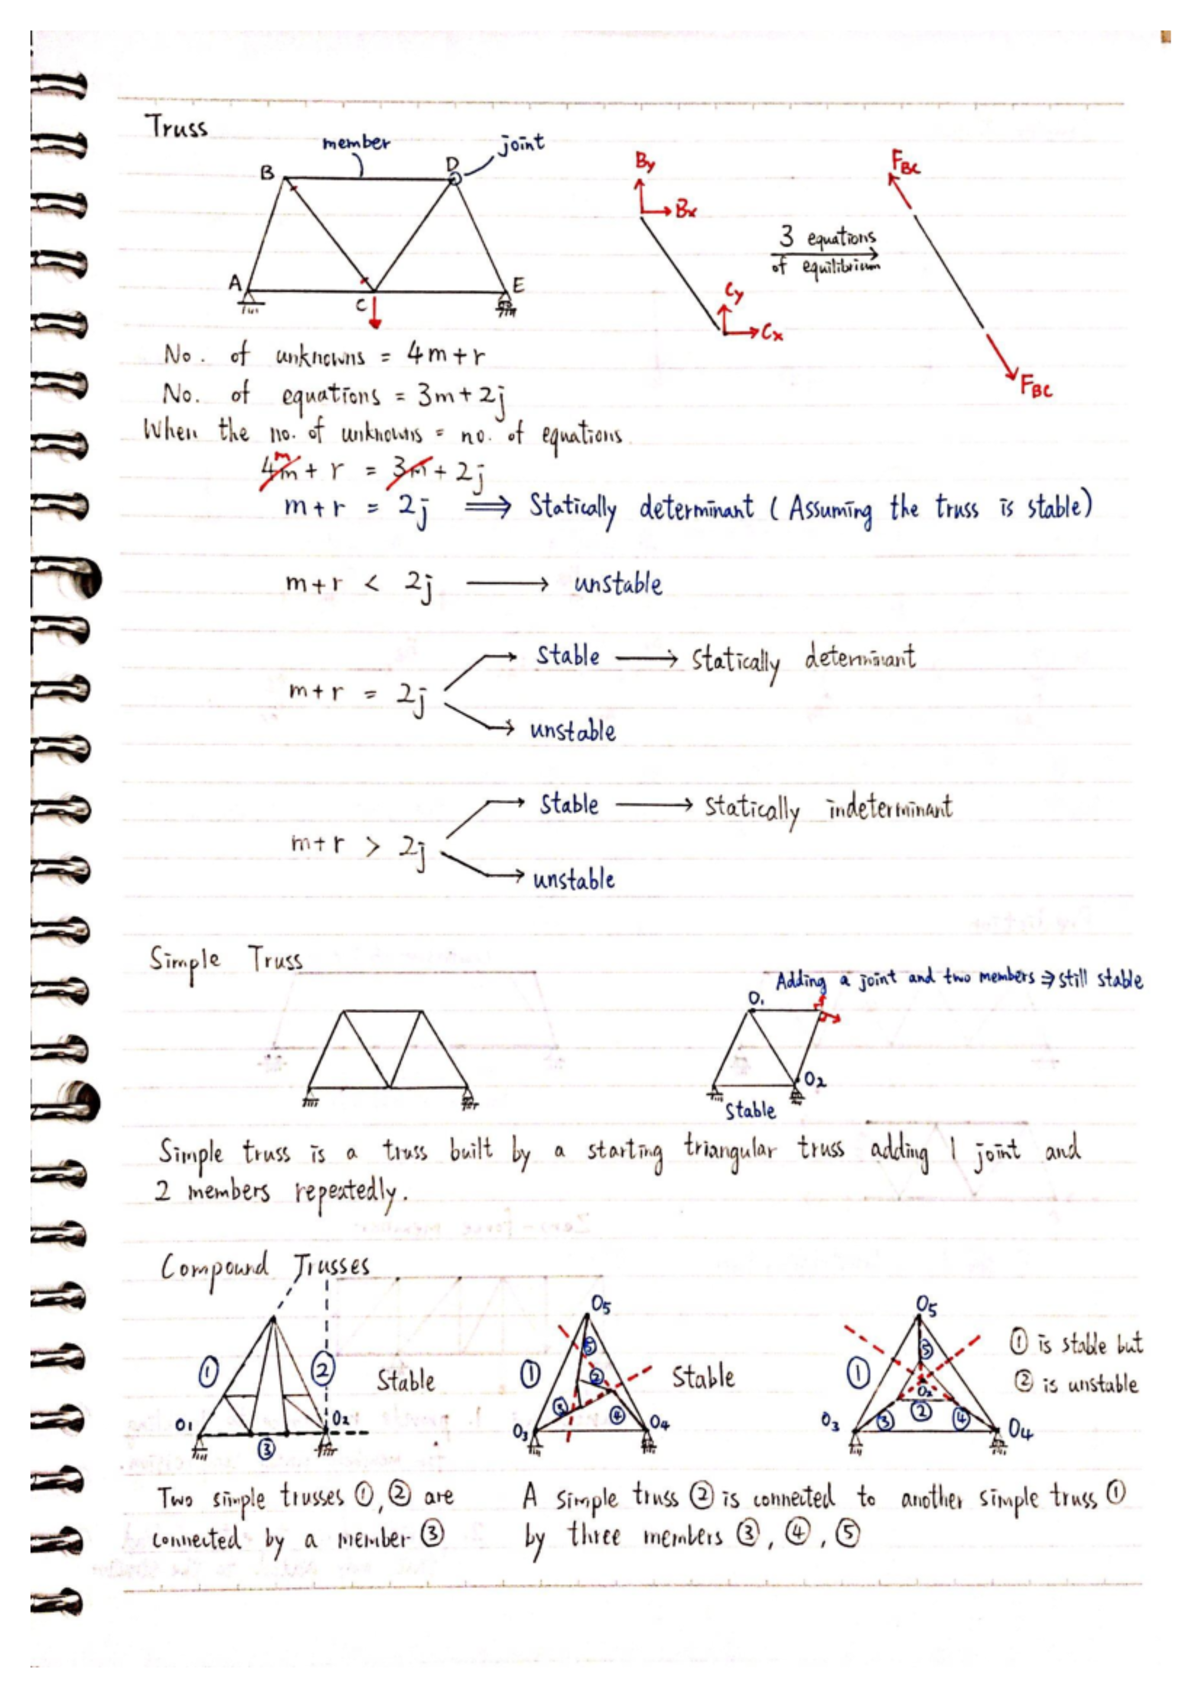 Truss
member
joint
B
D
A
C
E
By
Bx
Cy
Cx
3 equations
of equilibrium
FBC
FBC
No. of unknowns = 4m+r
No. of equations = 3m+2j
When the no. of unknowns = no. of equations
4m + r = 3m + 2j
m
m+r = 2j ⟹ Statically determinant (Assuming the truss is stable)
m+r < 2j → unstable
m+r = 2j
→ stable → statically determinant
→ unstable
m+r > 2j
→ stable → statically indeterminant
→ unstable
Simple Truss
Adding a joint and two members ⇒ still stable
O1
O2
stable
Simple truss is a truss built by a starting triangular truss adding 1 joint and
2 members repeatedly.
Compound Trusses
① ② ③ O1 O2
Stable
O5
① ② ③ ④ ⑤
O3 O4
Stable
O5
① ② ③ ④ ⑤
O3 O2 O4
① is stable but
② is unstable
Two simple trusses ①, ② are
connected by a member ③
A simple truss ② is connected to another simple truss ①
by three members ③, ④, ⑤